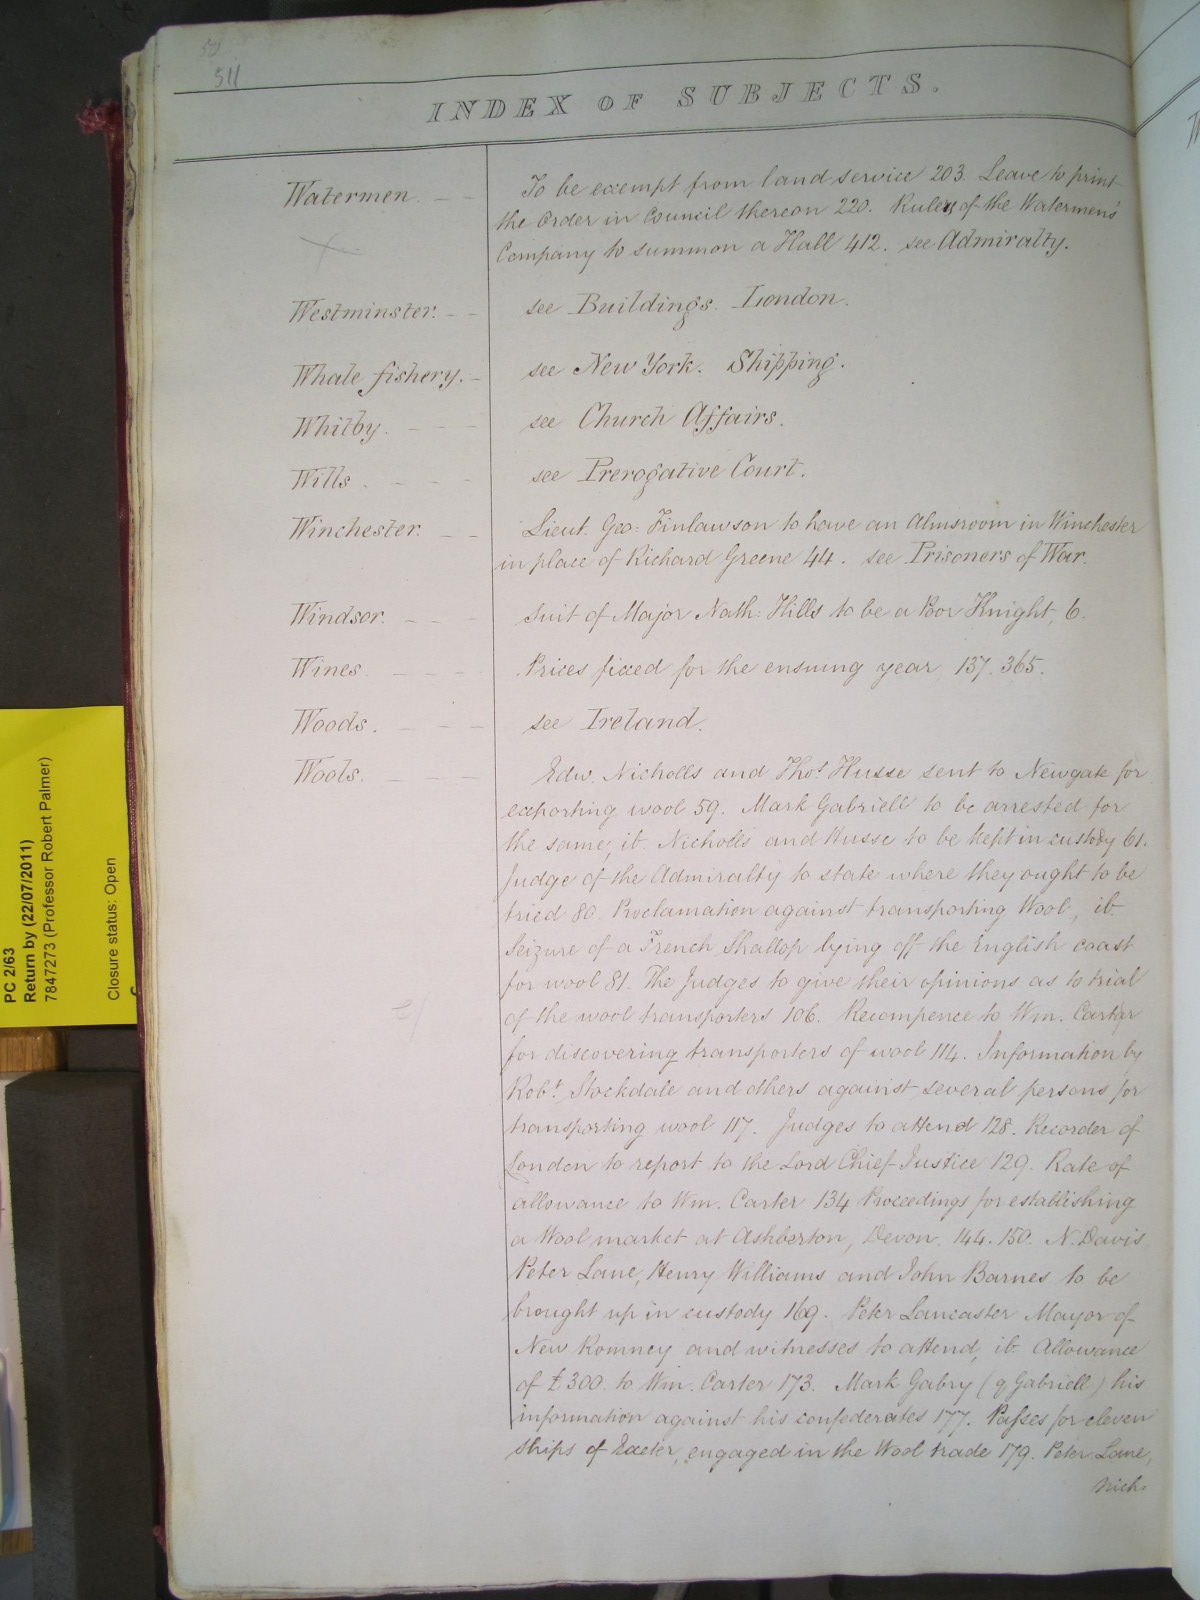 511
INDEX OF SUBJECTS.
Watermen
To be exempt from land service 203. Leave to print
the Order in Council thereon 220. Rulers of the Watermens'
Company to summon a Hall 412. see Admiralty.
Westminster.
see Buildings. London.
Whale fishery.
see New York. Shipping.
Whitby.
see Church Affairs.
Wills
see Prerogative Court.
Winchester.
Lieut. Geo: Finlawson to have an Almsroom in Winchester
in place of Richard Greene 44. see Prisoners of War.
Windsor.
Suit of Major Nath: Hills to be a Poor Knight, 6.
Wines
Prices fixed for the ensuing year 137. 365.
Woods.
see Ireland.
Wools.
Edw. Nicholls and Thos. Husse sent to Newgate for
exporting wool 59. Mark Gabriell to be arrested for
the same, ib. Nicholls and Husse to be kept in custody 61.
Judge of the Admiralty to state where they ought to be
tried 80. Proclamation against transporting Wool, ib.
Seizure of a French Shallop lying off the English coast
for wool 81. The Judges to give their opinions as to trial
of the wool transporters 106. Recompence to Wm. Carter
for discovering transporters of wool 114. Information by
Robt. Stockdale and others against several persons for
transporting wool 117. Judges to attend 128. Recorder of
London to report to the Lord Chief Justice 129. Rate of
allowance to Wm. Carter 134 Proceedings for establishing
a Wool market at Ashberton, Devon. 144. 150. N. Davis
Peter Lane, Henry Williams and John Barnes to be
brought up in custody 169. Peter Lancaster Mayor of
New Romney and witnesses to attend, ib. Allowance
of £300. to Wm. Carter 173. Mark Gabry (q Gabriell) his
information against his confederates 177. Passes for eleven
Ships of Exeter, engaged in the Wool trade 179. Peter Lane,
Nich:
PC 2/63
Return by (22/07/2011)
7847273 (Professor Robert Palmer)
Closure status: Open